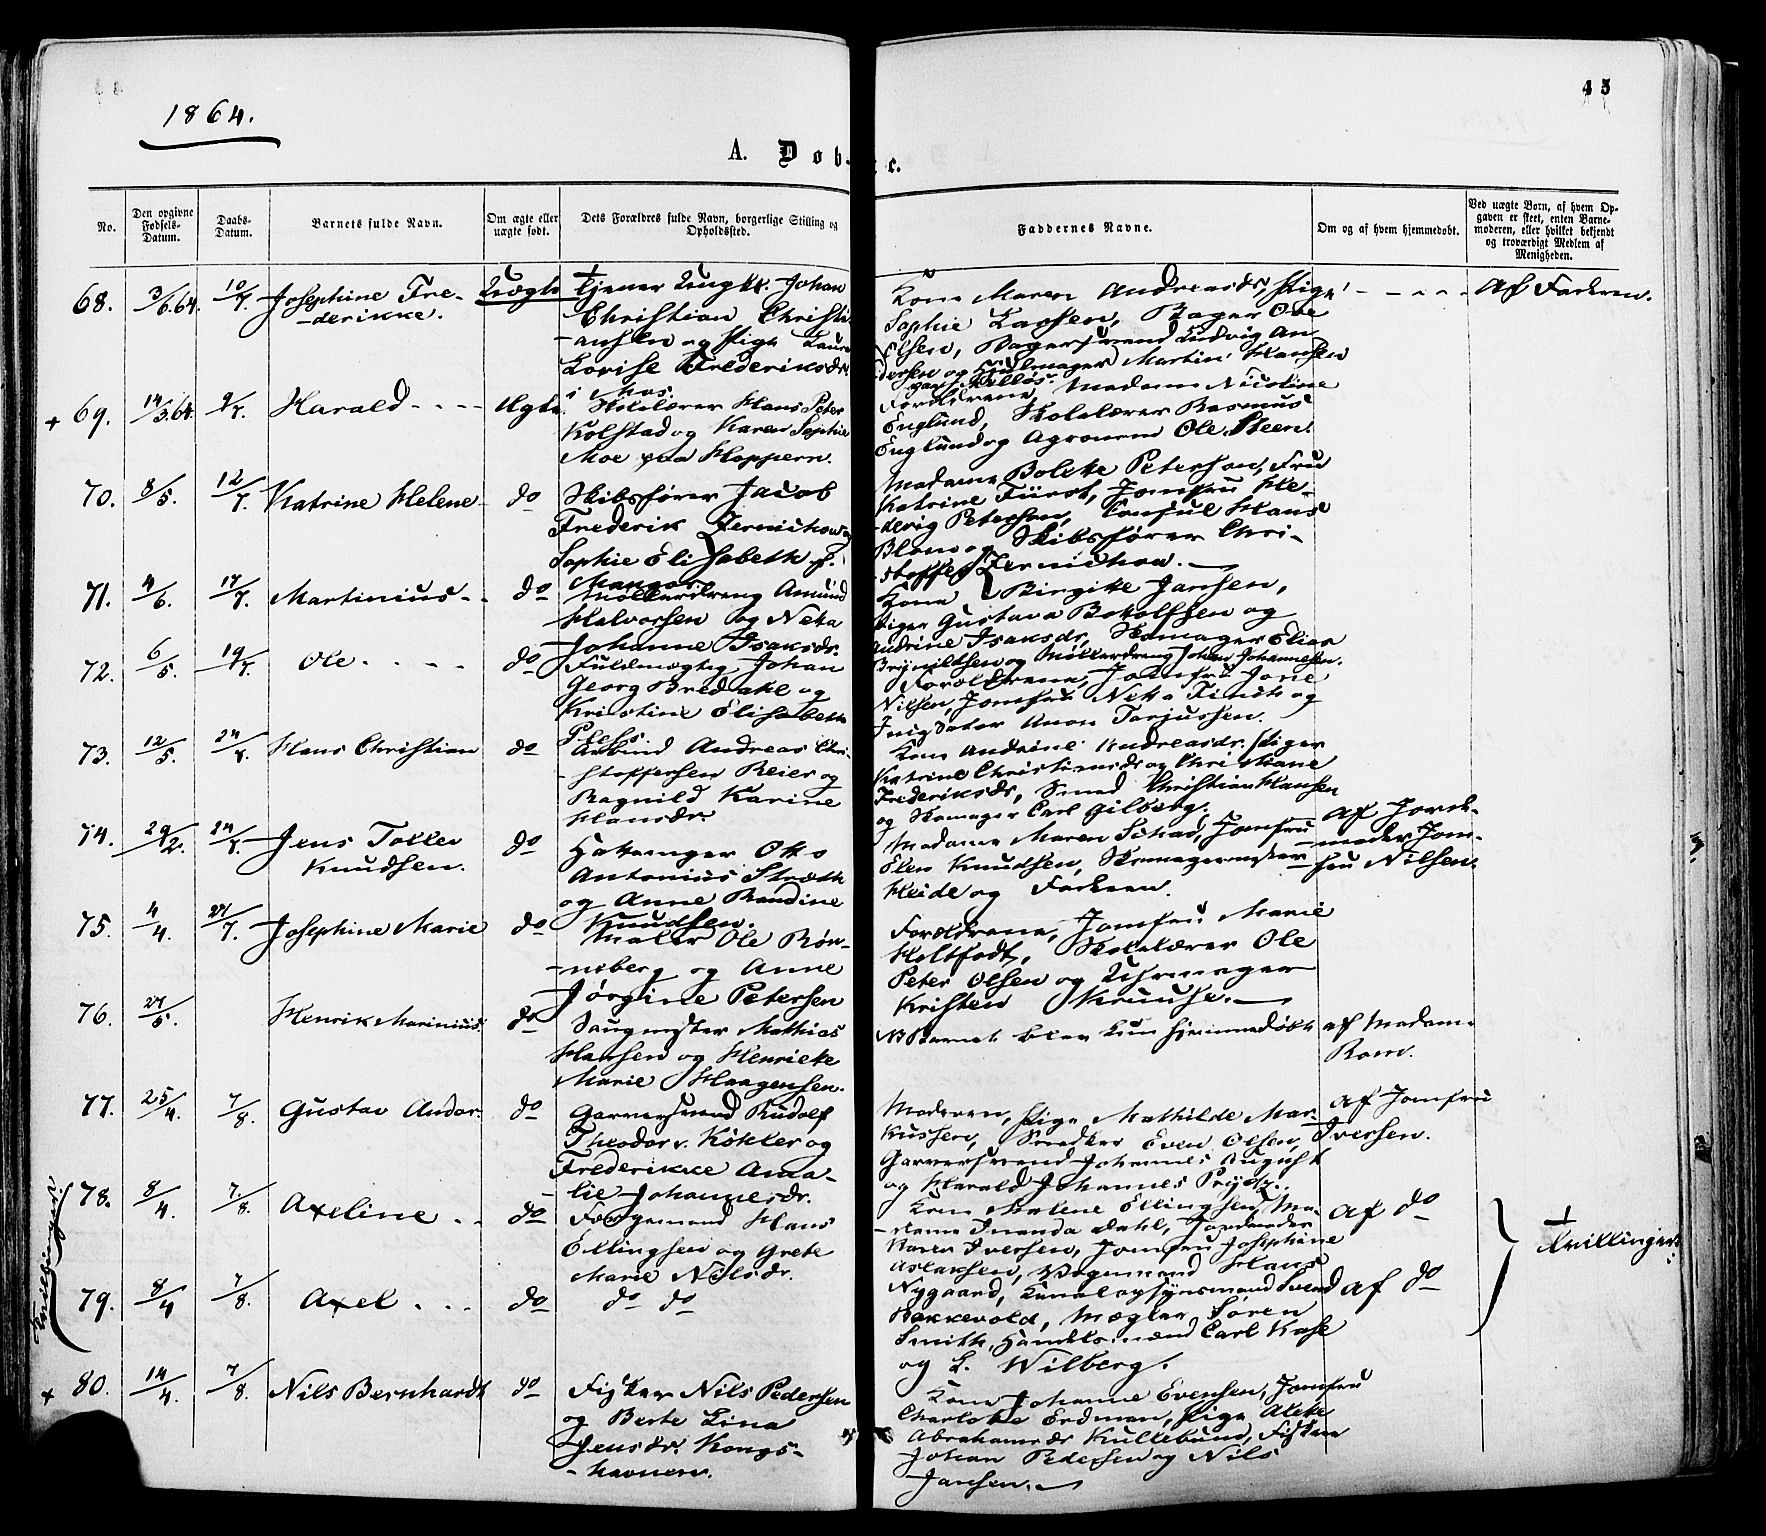 1864.
43
A. Døb-
te.
No.
Den opgivne Fødsels-Datum.
Daabs-Datum.
Barnets fulde Navn.
Om ægte eller uægte født.
Dets Forældres fulde Navn, borgerlige Stilling og Opholdssted.
Faddernes Navne.
Om og af hvem hjemmedøbt.
Ved uægte Børn, af hvem Opgaven er skeet, enten Barnemoderen, eller hvilket bekjendt og troværdigt Medlem af Menigheden.
68. 3/6.64. 10/7. Josephine Fre-
-derikke.
Uægte
Tjener Ungk. Johan
Christian Christi-
-ansen og Pige Laura
Lovise Frederiksdr.
i Mos.
Kone Maren Andreasdr, Pige
Sophie Larsen, Bager Ole
Elsen, Bagersvend Ludvig An-
-dersen og Martin Hansen
Af Faderen.
+ 69. 14/3.64. 9/7. Harald
Ægte.
Skolelærer Hans Peter
Kolstad og Karen Sophie
Moe paa Kloppern.
Forældrene, Madame Nicoline
Englund, Skolelærer Rasmus
Englund og Agronom Ole Steen.
70. 8/5. 12/7. Katrine Helene
do
Skibsfører Jacob
Frederik Zernichow og
Sophie Elisabeth f.
Mangor
Madame Bolette Peterson, Fru
Katrine Fürst, Jomfru He-
-devig Petersen, Consul Hans
Blom og Skibsfører Chri-
-stoffer Zernichow.
71. 4/6. 17/7. Martinius
do
Møllerdreng Amund
Halvorsen og Neka
Johanne Isaksdr.
Kone Birgitte Jansen,
Piger Gustava Botolfsen og
Andrine Isaksdr, Skomager Elias
Brynildsen og Møllerdreng Johan Johannesen.
72. 6/5. 19/7. Ole
do
Fuldmægtig Johan
Georg Bredahl og
Kristine Elisabeth
Pless.
Forældrene, Jomfru Jone
Nilsen, Jomfru Neka Finck og
Inigsater Anon Tarjussen.
73. 12/5. 24/7. Hans Christian
do
Arbmd Andreas Chri-
-stoffersen Reier og
Ragnild Karine
Hansdr.
Kone Andrine Andreasdr. Piger
Katrine Christiansdr og Christiane
Frederiksdr, Smed Christian Hansen
og Skomager Carl Gilberg.
74. 29/2. 24/7. Jens Toller
Knudsen.
do
Hattemager Otto
Antonius Strøth
og Anne Randine
Knudsen.
Madame Maren Schad, Jomfru
Elen Knudsen, Skomagermester
Heide og Faderen.
af Jorde-
-moder Jom-
-fru Nilsen.
75. 4/4. 27/7. Josephine Marie
do
Maler Ole Røn-
-neberg og Anne
Jørgine Petersen
Forældrene, Jomfru Marie
Holtfodt, Skolelærer Ole
Peter Olsen og Uhrmager
Kristen Kruuse.
76. 27/5. Henrik Marinius.
do
Saugmester Mathias
Hansen og Henriette
Marie Haagensen.
NB Barnet blev kun hjemmedøbt
af Madam
Rom.
77. 25/4. 7/8. Gustav Andor.
do
Garversvend Rudolf
Theodor v. Köhler og
Frederikke Ama-
-lie Johannesdr.
Moderen, Pige Mathilde Mar-
kussen, Snedker Even Olsen,
Garversvend Johannes August
og Harald Johannes Prydtz.
af Jomfru
Iversen.
Tvillinger.
78. 8/4. 7/8. Axeline
do
Forgemand Hans
Ellingsen og Grete
Marie Nilsdr.
Kone Malene Ellingsen, Ma-
-dame Inanda Dahl, Jordmoder
Karen Iversen, Jomfru Josephine
Aslaksen, Vognmand Hans
af do
+
Tvillinger
79. 8/4 7/8. Axel
do
do do
Nygaard, Kanalopsynsmand Svend
Bakkevold, Mægler Søren
Smith, Handelsmænd Carl Kase
og L. Wilberg.
af do
+ 80. 14/4. 7/8. Nils Bernhardt
do
Fisker Nils Pedersen
og Berte Lina
Jensdr. Kongs-
-havnen.
Kone Johanne Evensen, Jomfru
Charlotte Erdman, Pige Alette
Abrahamsdr Kullebund, Fisker
Johan Pedersen og Nils
Jansen.